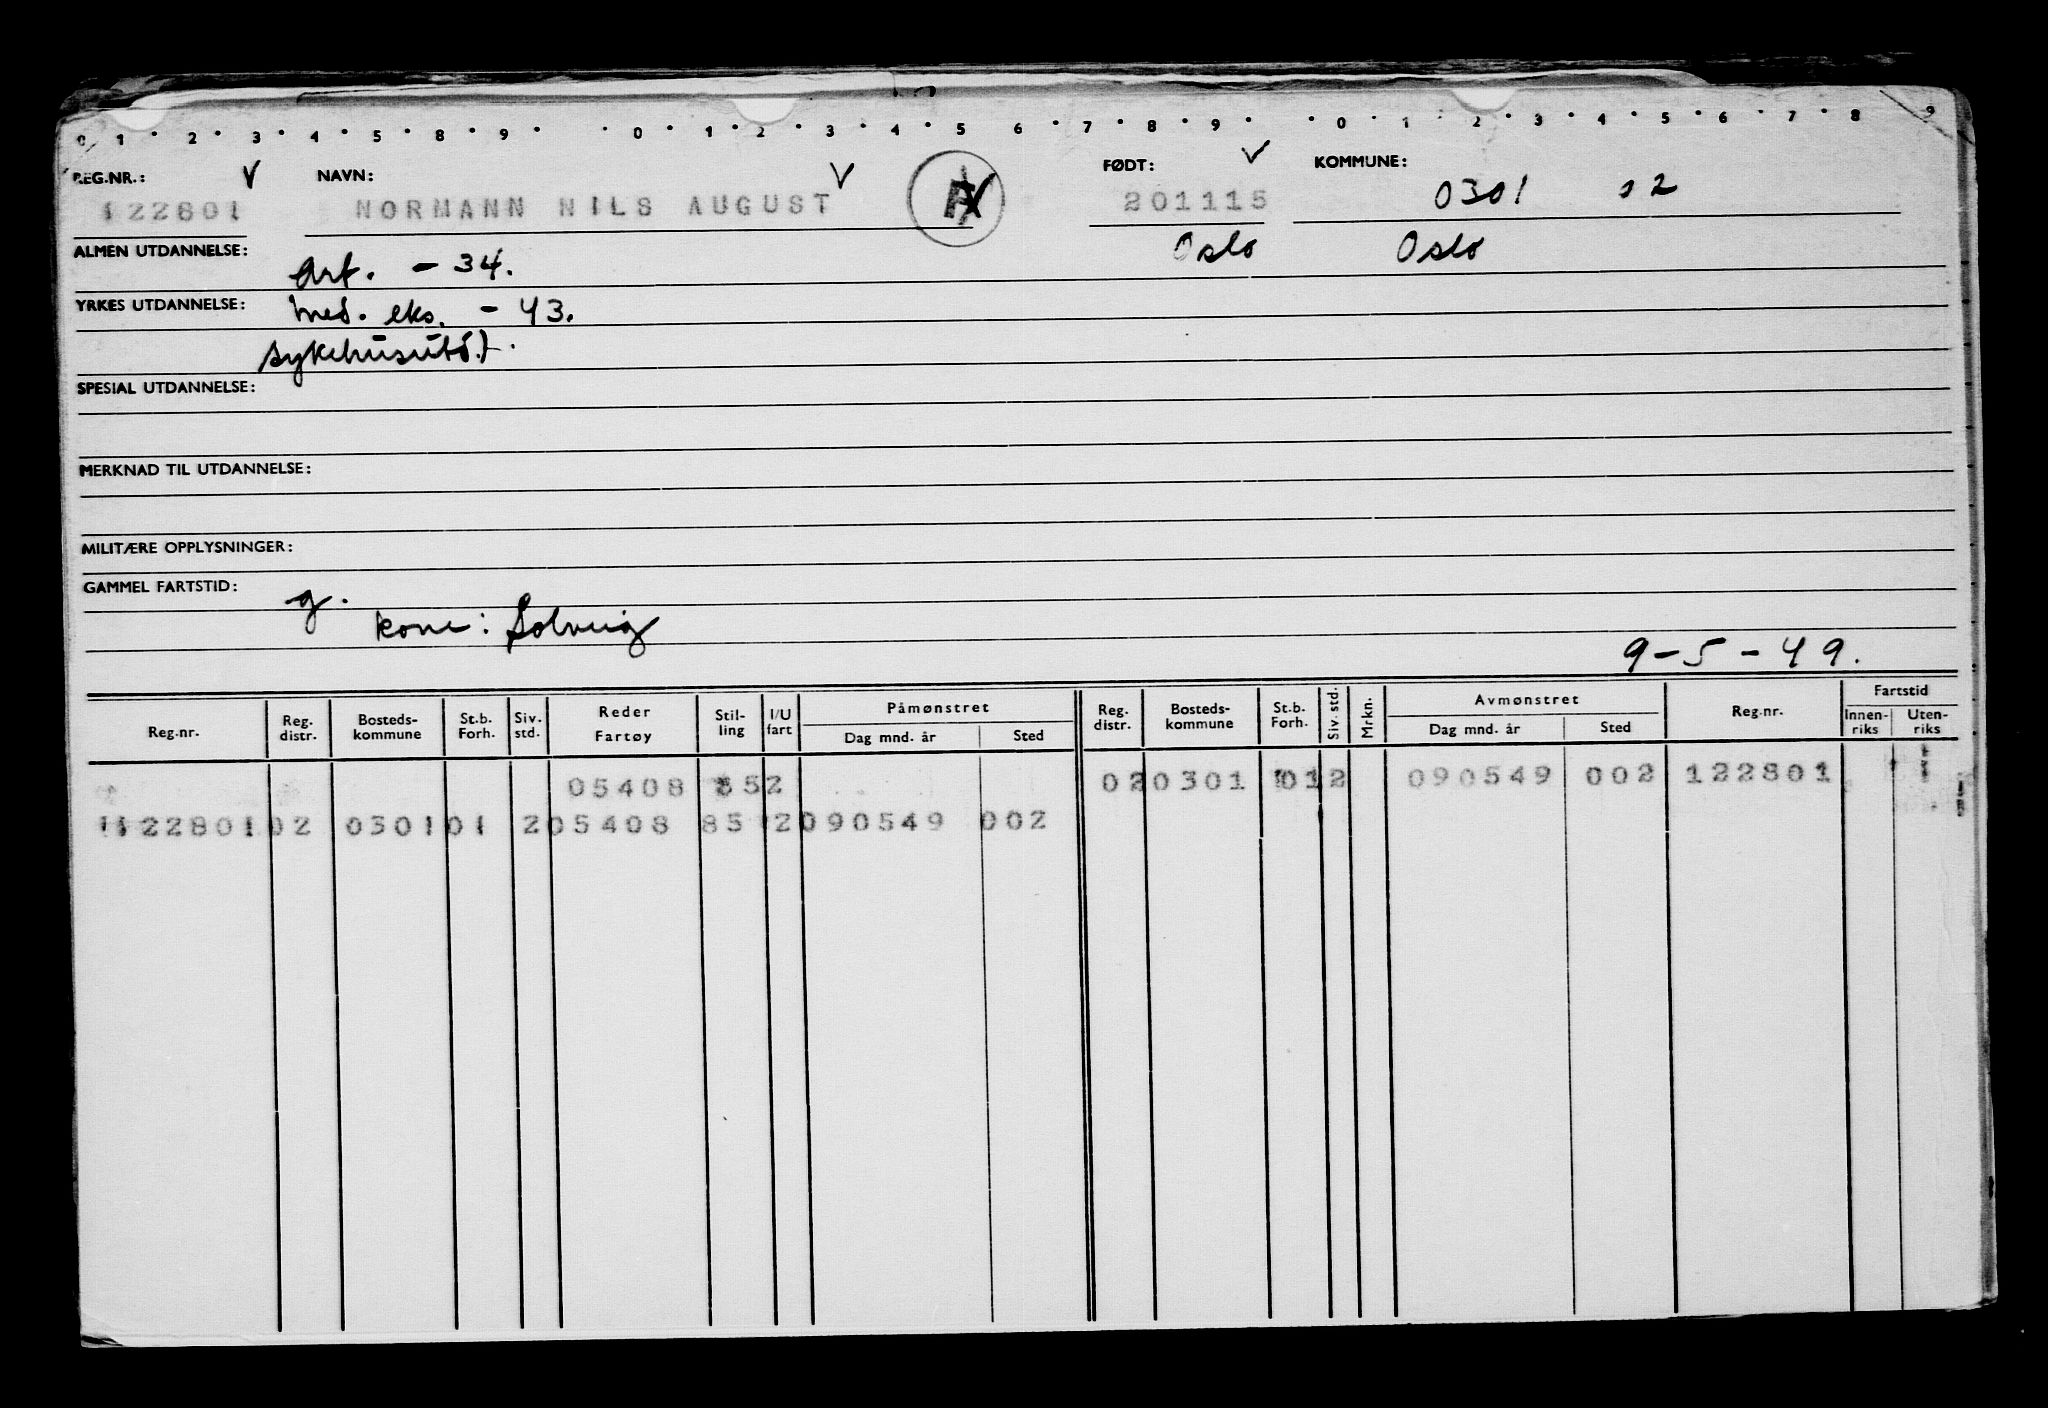 0 1 2 3 4 5 8 9 0 1 2 3 4 5 6 7 8 9 0 1 2 3 4 5 6 7 8 9
REG.NR.: NAVN: FØDT: KOMMUNE:
122801 NORMANN NILS AUGUST 201115 0301 02
ALMEN UTDANNELSE: Art. - 34. Oslo Oslo
YRKES UTDANNELSE: Med. eks. - 43.
sykehusutd.
SPESIAL UTDANNELSE:
MERKNAD TIL UTDANNELSE:
MILITÆRE OPPLYSNINGER:
GAMMEL FARTSTID: g.
kone: Solveig
9-5-49.
Reg.nr. Reg. distr. Bosteds-kommune St.b. Forh. Siv. std. Reder Fartøy Stil-ling I/U fart Påmønstret Dag mnd. år Sted Reg. distr. Bosteds-kommune St.b. Forh. Siv. std. Mrkn. Avmønstret Dag mnd. år Sted Reg.nr. Fartstid Innen-riks Uten-riks
05408 852 020301 012 090549 002 122801
122801 02 0301 01 2 05408 85 2 090549 002